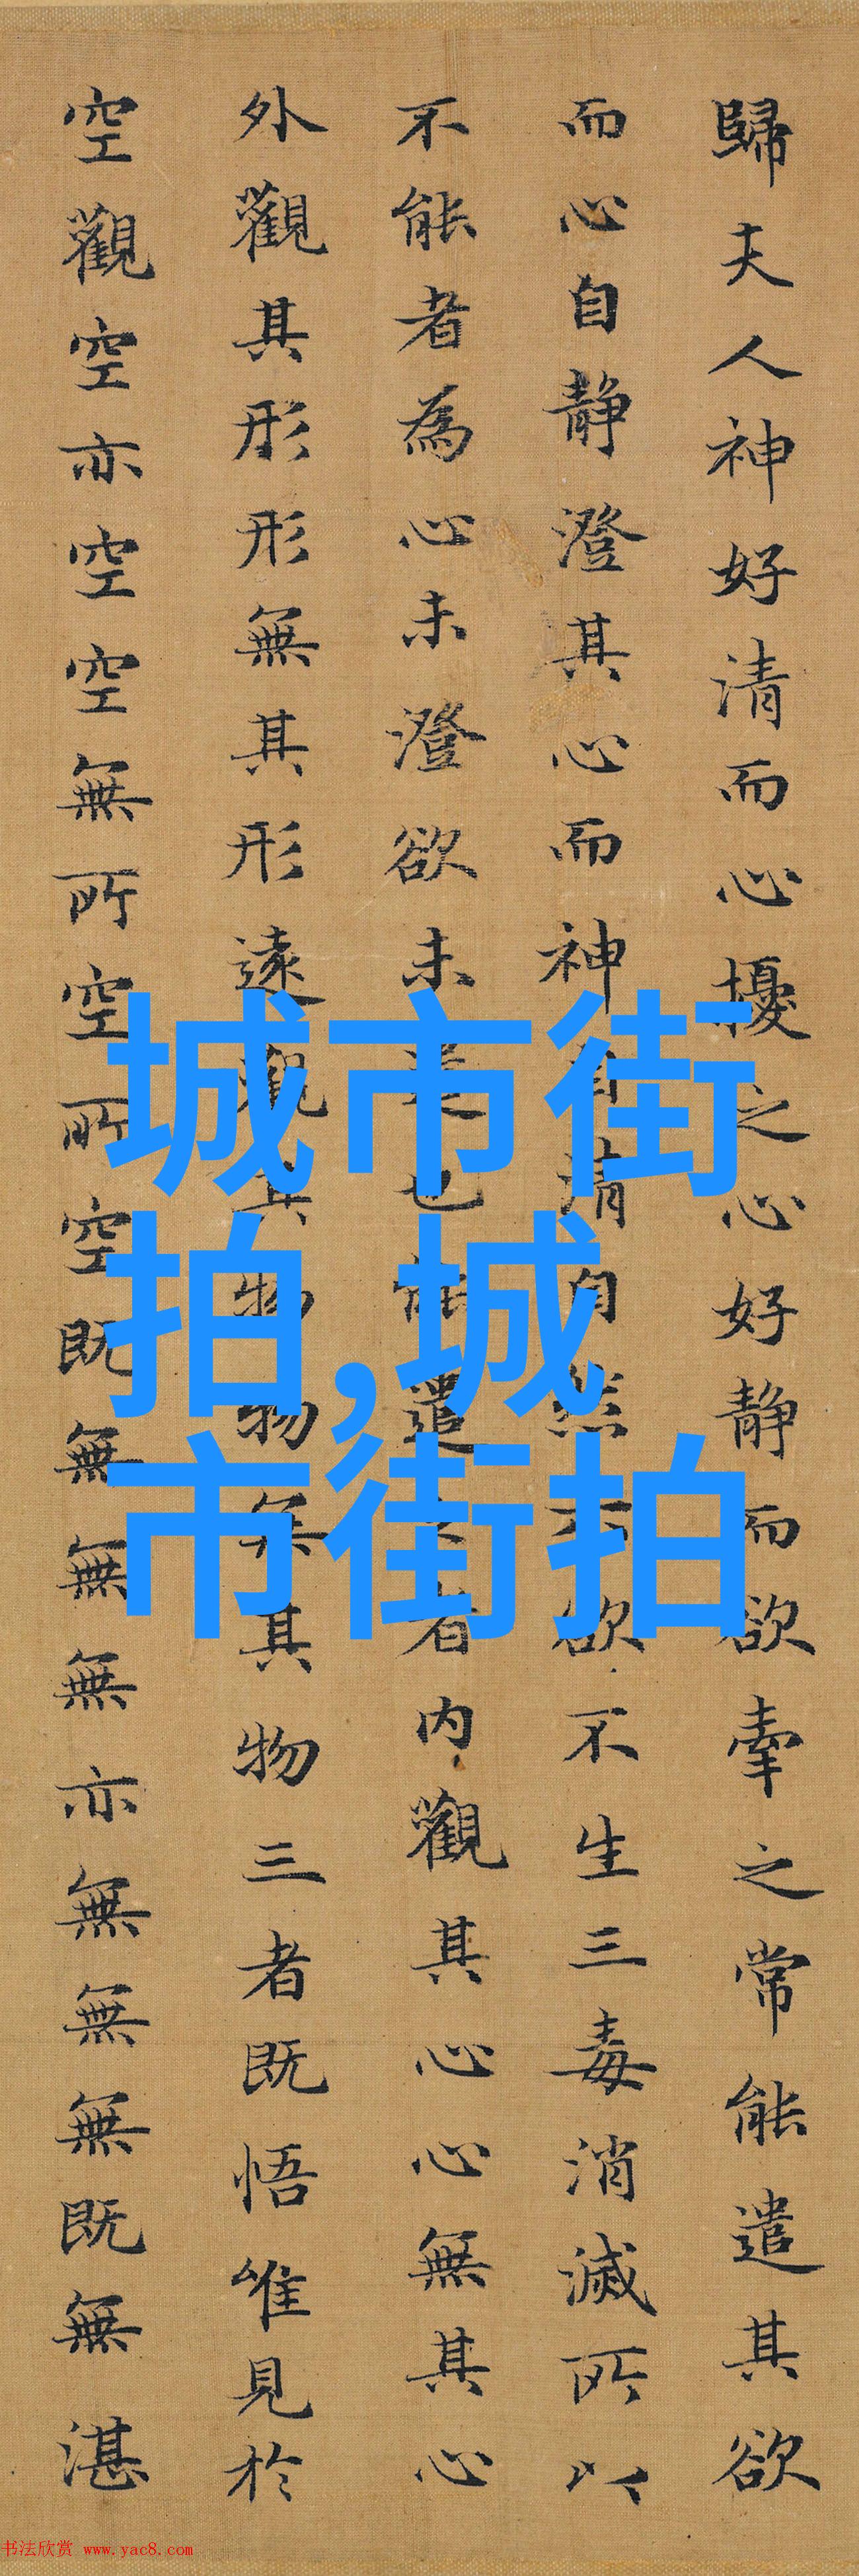 歸夫人神好清而心擾之心好静而欲牽之常能遣其欲
而心自静澄其心而神自清自然六欲不生三毒消滅所以
不能者為心未澄欲未遣也能遣之者内觀其心心無其心
外觀其形形無其形遠觀其物物無其物三者既悟唯見於
空觀空亦空空無所空所空既無無無亦無無無既無湛
城市街
拍,城
市街拍
书法欣赏 www.yac8.com